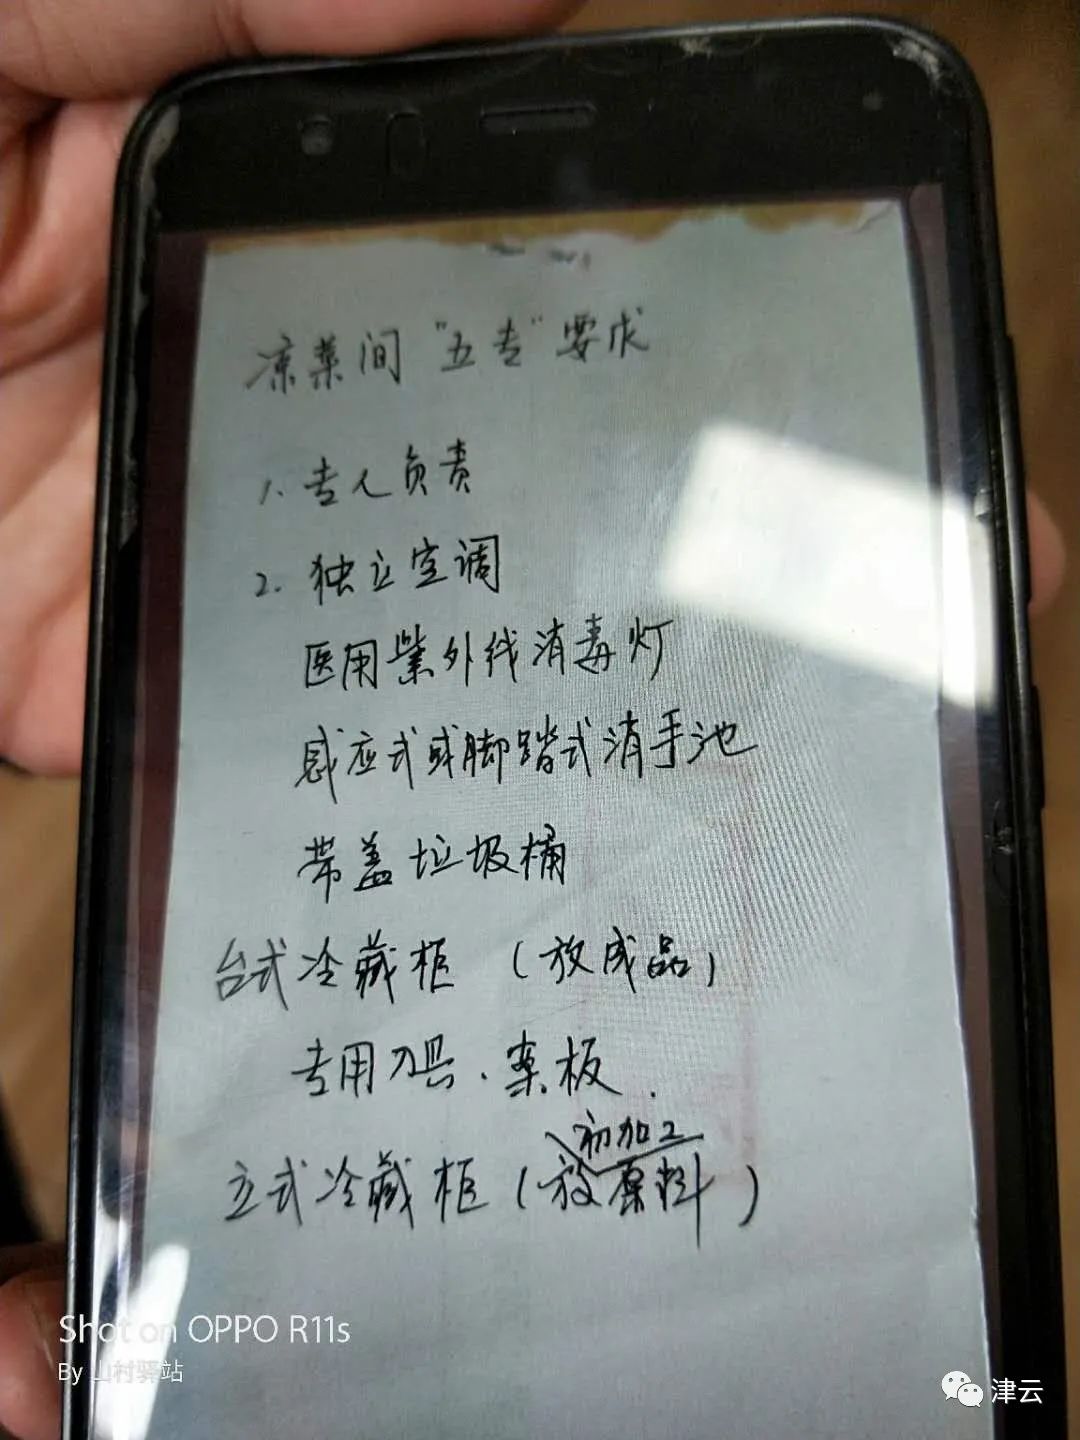 凉菜间"五专"要求
1. 专人负责
2. 独立空调
医用紫外线消毒灯
感应式或脚踏式消手池
带盖垃圾桶
台式冷藏柜（放成品）
专用刀具、案板.
初加工
立式冷藏柜（放原料）
Shot on OPPO R11s
By 山村驿站
津云